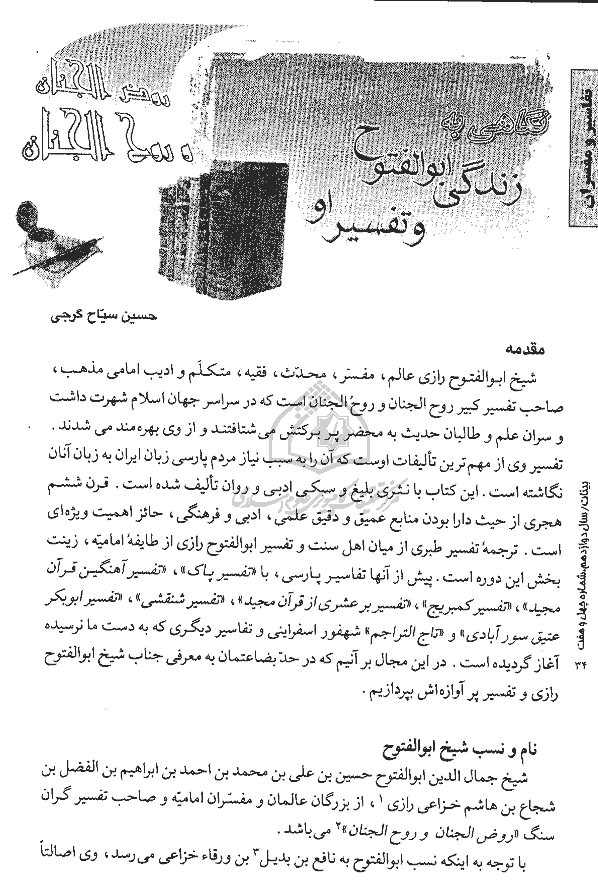 تفاسیر و مفسران
روض الجنان
و روح الجنان
نگاهی به
زندگی ابوالفتوح
و تفسیر او
حسین سیّاح گرجی
مقدمه
شیخ ابوالفتوح رازی عالم، مفسّر، محدّث، فقیه، متکلّم و ادیب امامی مذهب،
صاحب تفسیر کبیر روح الجنان و روحُ الجنان است که در سراسر جهان اسلام شهرت داشت
و سران علم و طالبان حدیث به محضر پر برکتش می‌شتافتند و از وی بهره‌مند می شدند.
تفسیر وی از مهم‌ترین تألیفات اوست که آن را به سبب نیاز مردم پارسی زبان ایران به زبان آنان
نگاشته است. این کتاب با نثری بلیغ و سبکی ادبی و روان تألیف شده است. قرن ششم
هجری از حیث دارا بودن منابع عمیق و دقیق علمی، ادبی و فرهنگی، حائز اهمیت ویژه‌ای
است. ترجمهٔ تفسیر طبری از میان اهل سنت و تفسیر ابوالفتوح رازی از طایفهٔ امامیّه، زینت
بخش این دوره است. پیش از آنها تفاسیر پارسی، با «تفسیر پاک»، «تفسیر آهنگین قرآن
مجید»، «تفسیر کمبریج»، «تفسیر بر عشری از قرآن مجید»، «تفسیر شنقشی»، «تفسیر ابوبکر
عتیق سورآبادی» و «تاج التراجم» شهفور اسفراینی و تفاسیر دیگری که به دست ما نرسیده
آغاز گردیده است. در این مجال بر آنیم که در حدّ بضاعتمان به معرفی جناب شیخ ابوالفتوح
رازی و تفسیر پر آوازه‌اش بپردازیم.
نام و نسب شیخ ابوالفتوح
شیخ جمال الدین ابوالفتوح حسین بن علی بن محمد بن احمد بن ابراهیم بن الفضل بن
شجاع بن هاشم خزاعی رازی ۱، از بزرگان عالمان و مفسّران امامیّه و صاحب تفسیر گران
سنگ «روض الجنان و روح الجنان»۲ می‌باشد.
با توجه به اینکه نسب ابوالفتوح به نافع بن بدیل۳ بن ورقاء خزاعی می‌رسد، وی اصالتاً
بینات/سال دوازدهم،شماره چهل و هفت
۳۴